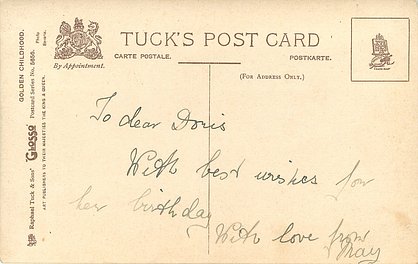 TUCK'S POST CARD
CARTE POSTALE.
POSTKARTE.
By Appointment.
(FOR ADDRESS ONLY.)
To dear Doris
With best wishes for
her birthday
With love from
May
GOLDEN CHILDHOOD.
Raphael Tuck & Sons' "Glosso" Postcard Series No. 5656.
ART PUBLISHERS TO THEIR MAJESTIES THE KING & QUEEN.